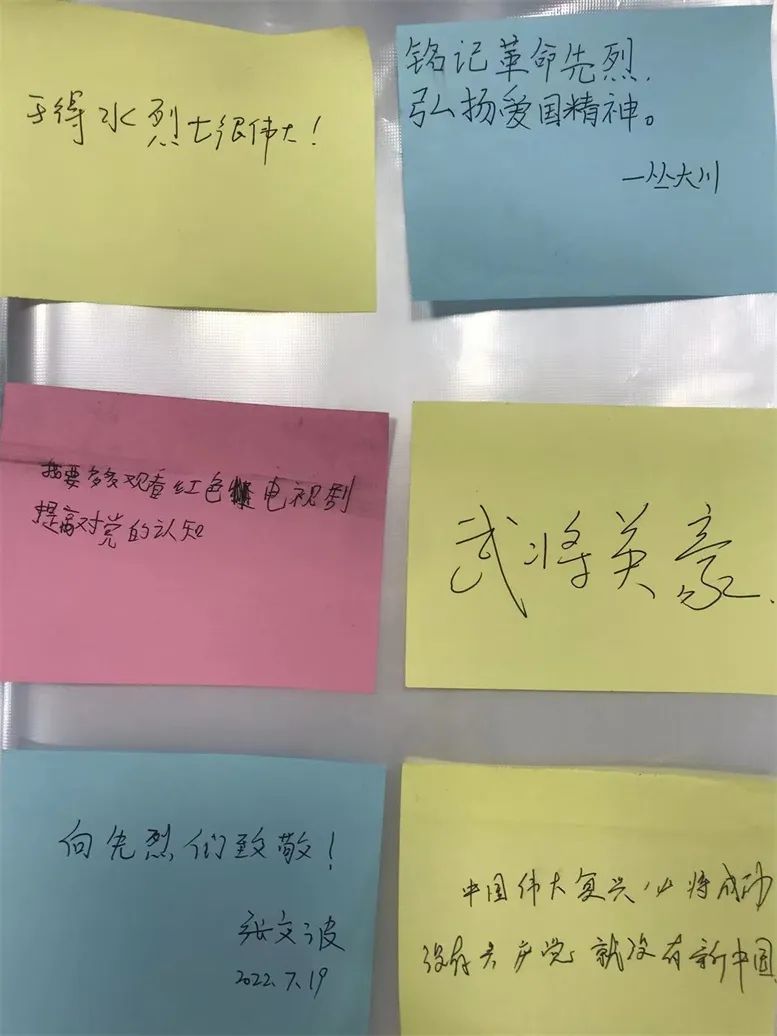 于得水烈士很伟大!
铭记革命先烈,
弘扬爱国精神。
—丛大川
我要多多观看红色电视剧
提高对党的认知
武将英豪.
向先烈们致敬!
张文波
2022.7.19
中国伟大复兴,必将成功
没有共产党就没有新中国.